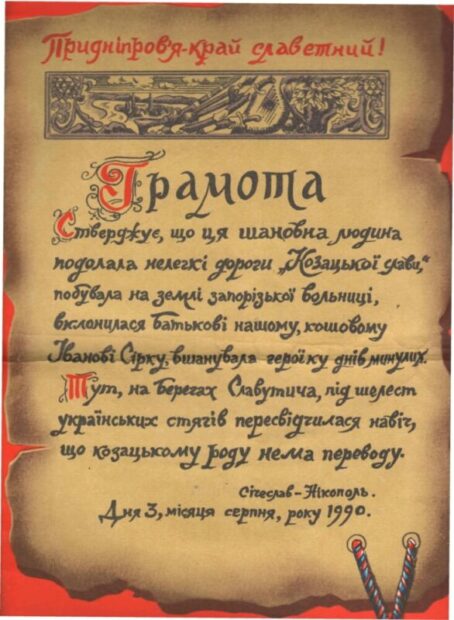 Придніпров'я-край славетний!
Грамота
Стверджує, що ця шановна людина
подолала нелегкі дороги „Козацької слави,"
побувала на землі запорізької вольниці,
вклонилася батькові нашому, кошовому
Іванові Сірку, вшанувала героїку днів минулих.
Тут, на берегах Славутича, під шелест
українських стягів пересвідчилася навіч,
що козацькому роду нема переводу.
Січеслав-Нікополь.
Дня 3, місяця серпня, року 1990.